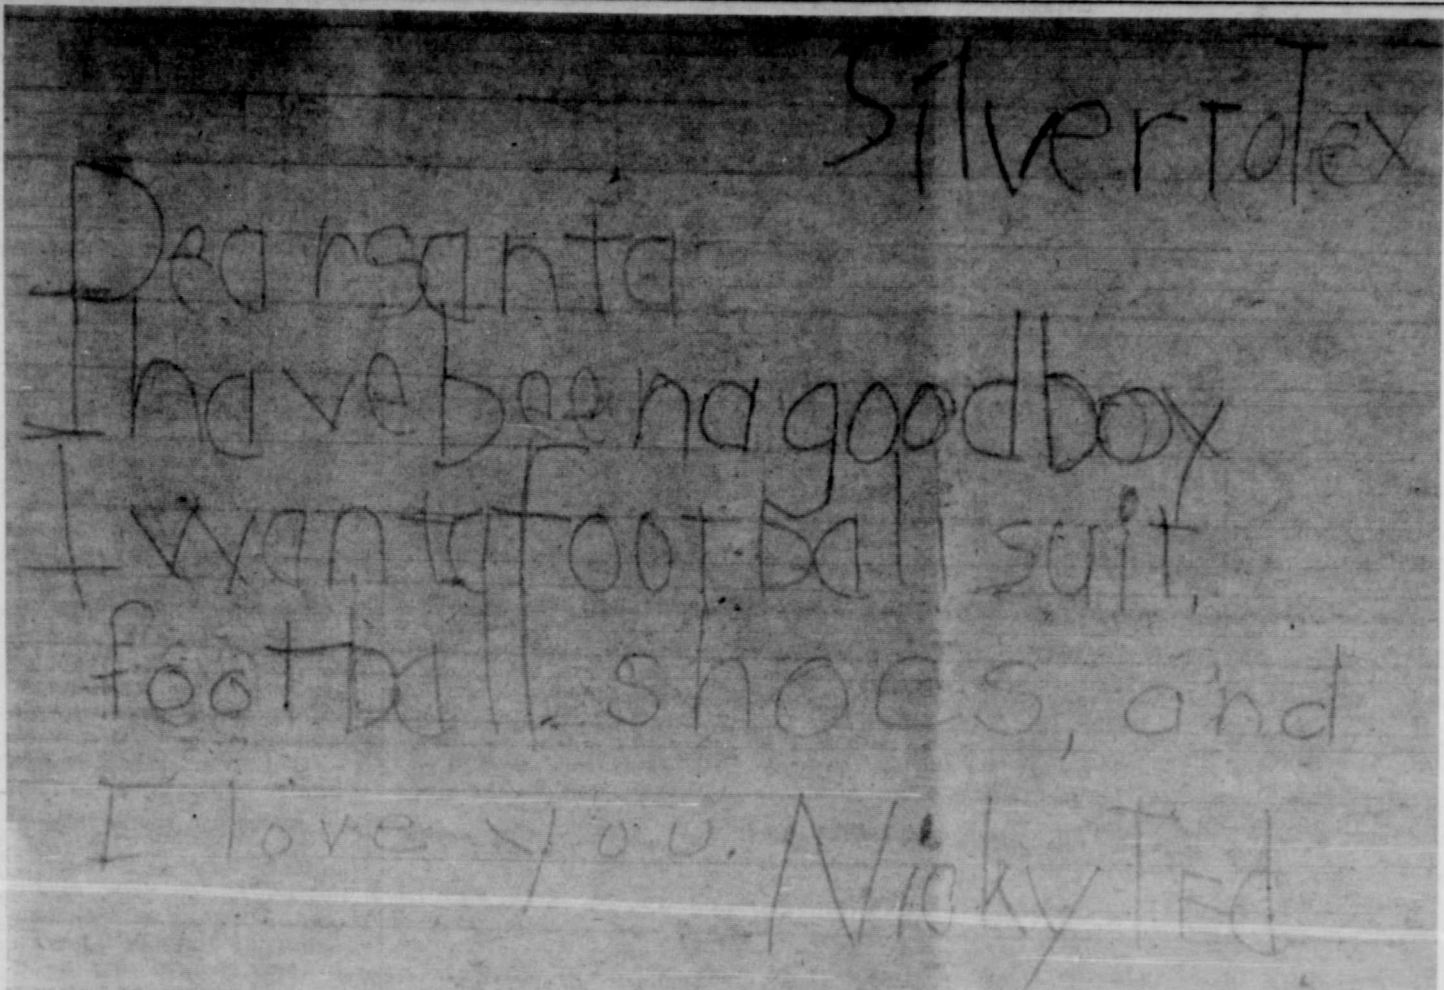 SilverToTex
Dearsanta
Ihavebeenagoodboy
I wantafootball suit,
football shoes, and
I love you. Nicky Ted